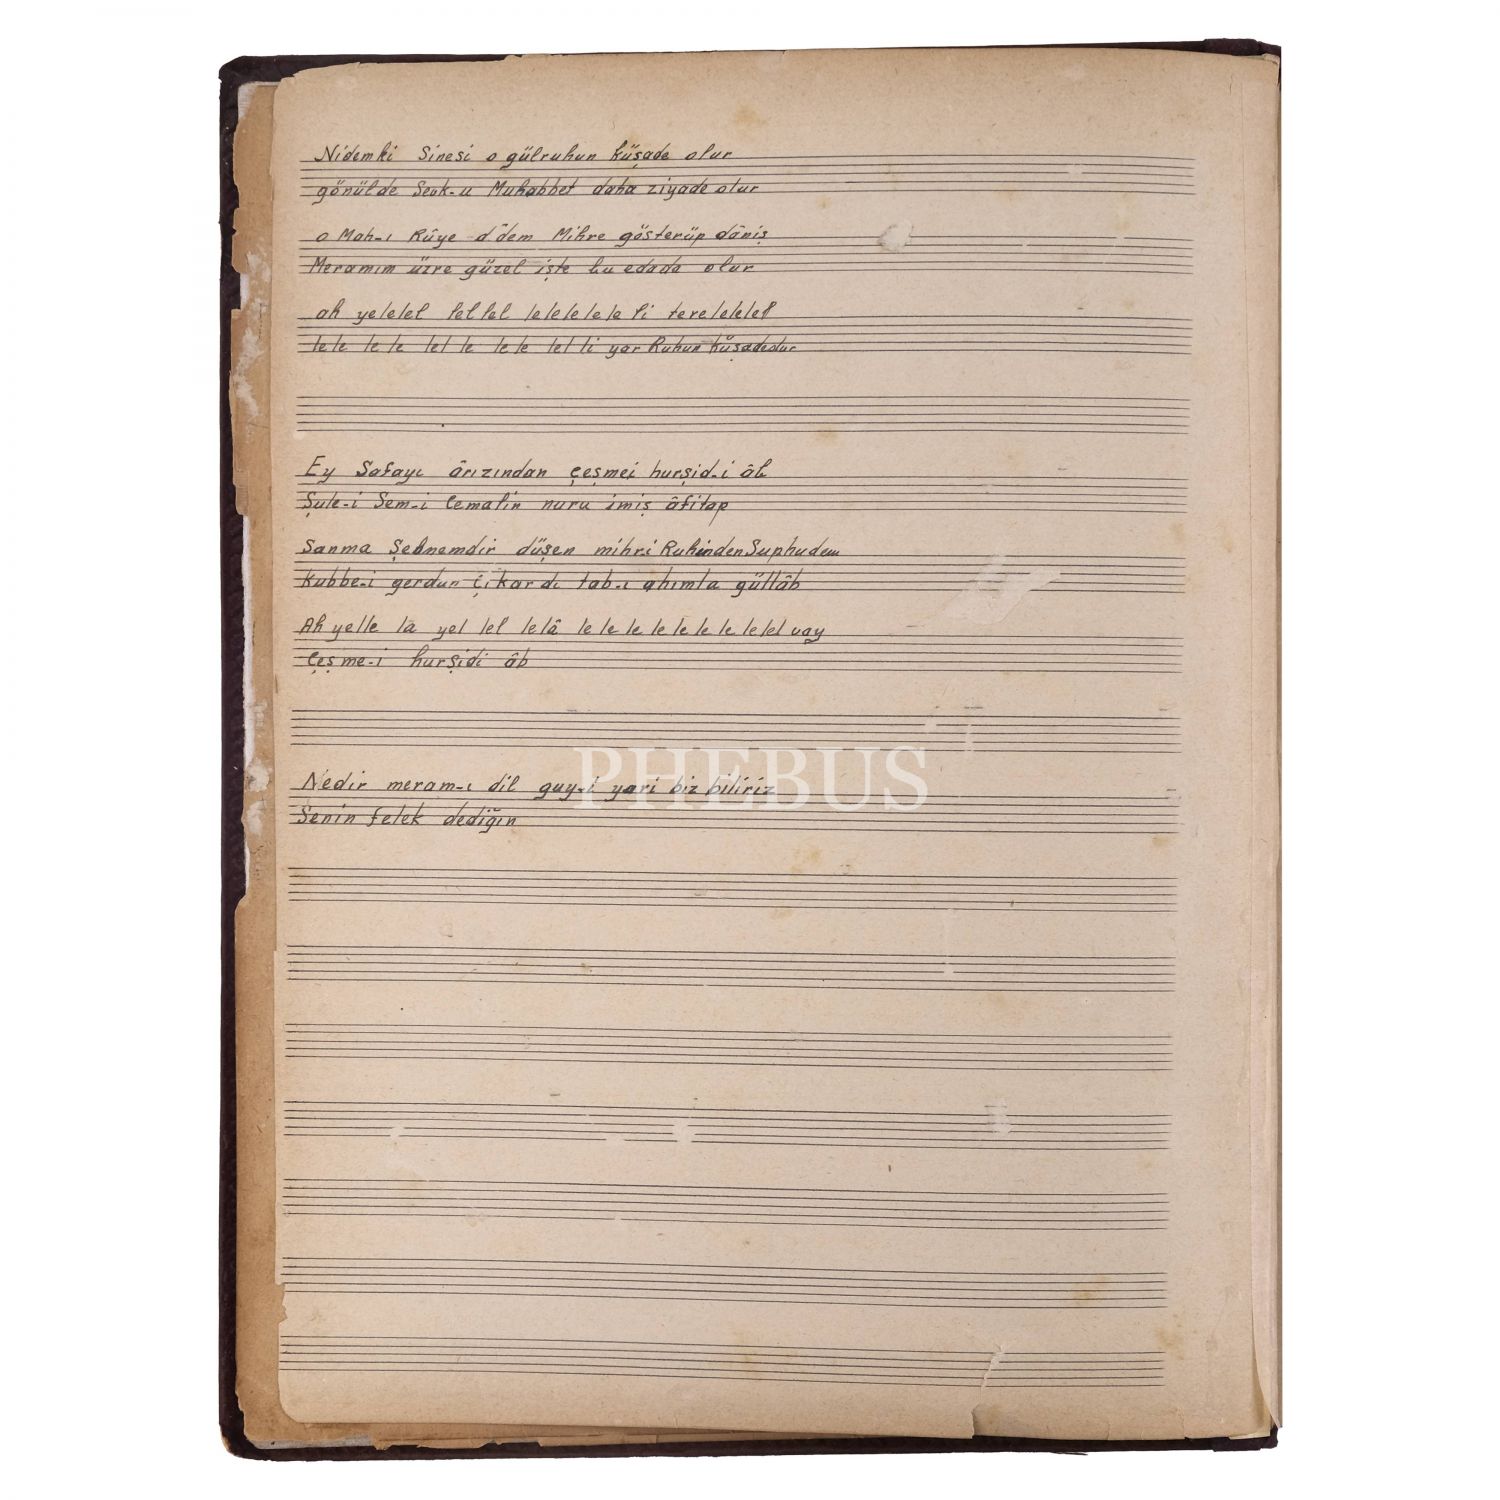 Nidemki Sinesi o gülruhun küşade olur
gönülde Sevk-u Muhabbet daha ziyade olur
o Mah-ı Rûye dâdem Mihre gösterüp dâniş
Meramım üzre güzel işte bu edada olur
ah yelelel lel lel lelelelelele li terelelelel
lele lele lel le lele lel li yar Ruhun küşadeolur
Ey Safayı ârızından çeşmei hurşid-i âb
Şule-i Sem-i Cemalin nuru imiş âfitap
Sanma Şebnemdir düşen mihri Ruhinden Suphudem
Kubbe-i gerdun çıkardı tab-ı ahımla güllâb
Ah yelle la yel lel lelâ le le le le le le le le lel vay
Çeşme-i hurşidi âb
Nedir meram-ı dil guy-i yari biz biliriz
Senin felek dediğin
PHEBUS